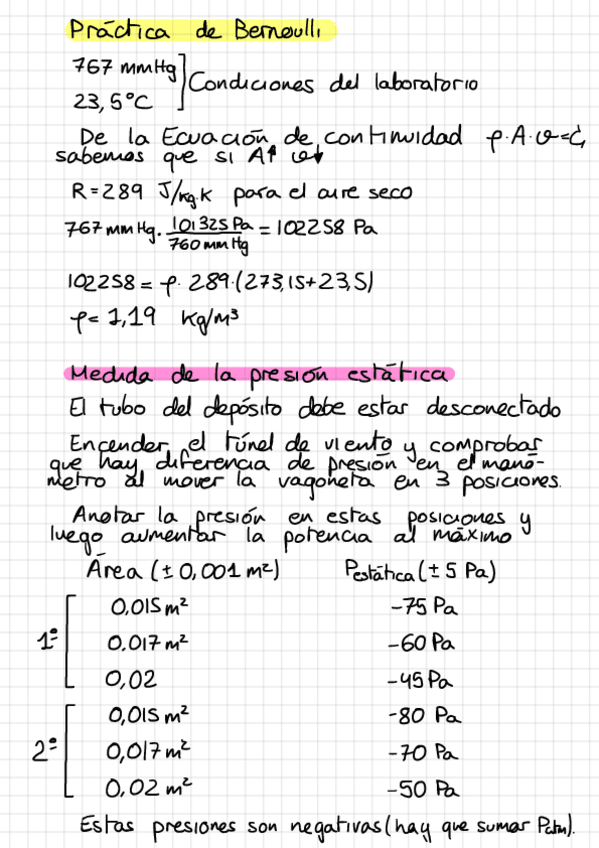 Práctica de Bernoulli
767 mmHg
23,5°C
Condiciones del laboratorio
De la Ecuación de continuidad ρ·A·v=C,
sabemos que si A↑ v↓
R=289 J/kg·K para el aire seco
767 mmHg · 101325 Pa / 760 mmHg = 102258 Pa
102258 = ρ · 289·(273,15+23,5)
ρ= 1,19 kg/m³
Medida de la presión estática
El tubo del depósito debe estar desconectado
Encender el túnel de viento y comprobar
que hay diferencia de presión en el manó-
metro al mover la vagoneta en 3 posiciones.
Anotar la presión en estas posiciones y
luego aumentar la potencia al máximo
Área (± 0,001 m²) Pestática (± 5 Pa)
1º
0,015 m² -75 Pa
0.017 m² -60 Pa
0,02 -45 Pa
2º
0,015 m² -80 Pa
0,017 m² -70 Pa
0,02 m² -50 Pa
Estas presiones son negativas (hay que sumar Patm).